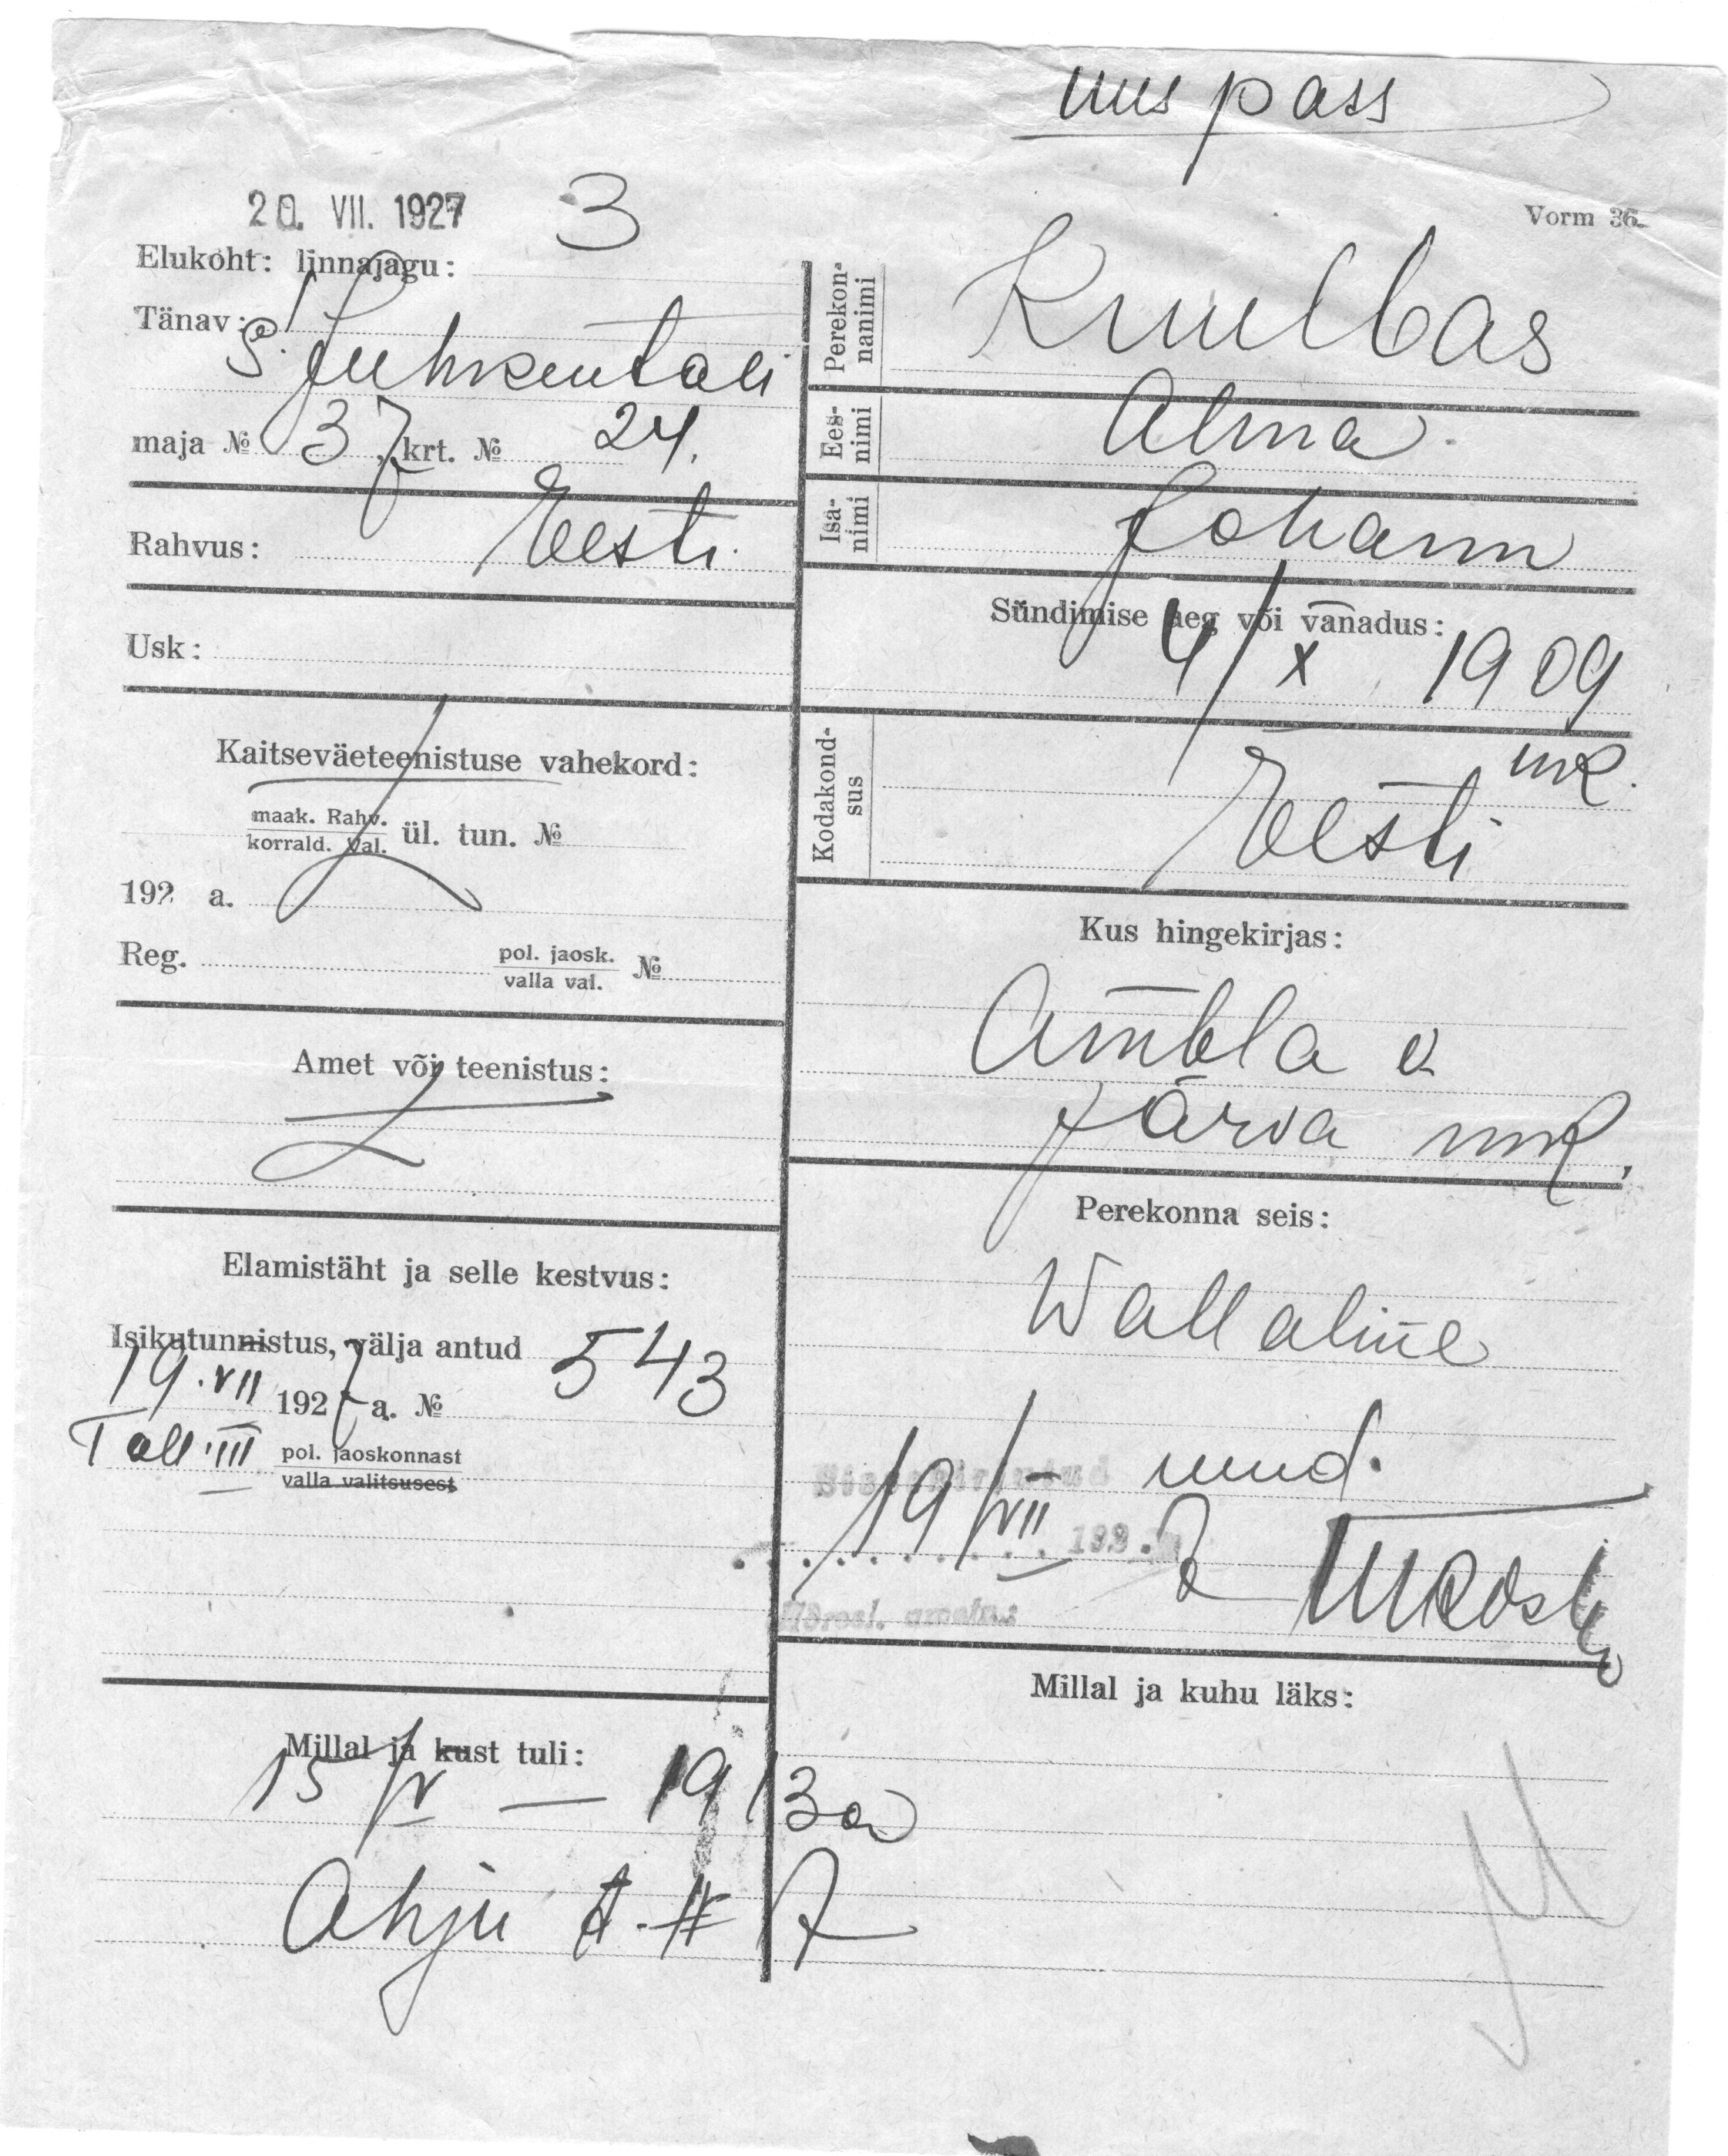 uus pass
20. VII. 1927 3
Vorm 36.
Elukoht: linnajagu:
Tänav: S. Juhkentali
maja № 37, krt. № 24.
Rahvus: Eesti.
Usk:
Kaitseväeteenistuse vahekord:
maak. Rahv.
korrald. Val. ül. tun. №
192 a.
Reg. pol. jaosk.
valla val. №
Amet või teenistus:
Elamistäht ja selle kestvus:
Isikutunnistus, välja antud
19. VII 1927 a. № 543
Tall. III pol. jaoskonnast
valla valitsusest
Millal ja kust tuli:
15 IV — 1913 a
Ahju t.
Perekon-
nanimi
Kuulbas
Ees-
nimi
Alma
Isa-
nimi
Johann
Sündimise aeg või vanadus:
4/X 1909
Kodakond-
sus
Eesti
Kus hingekirjas:
Ambla v
Järva mk.
Perekonna seis:
Wallaline
Sissekirjutud
19/VII 192.
Millal ja kuhu läks: